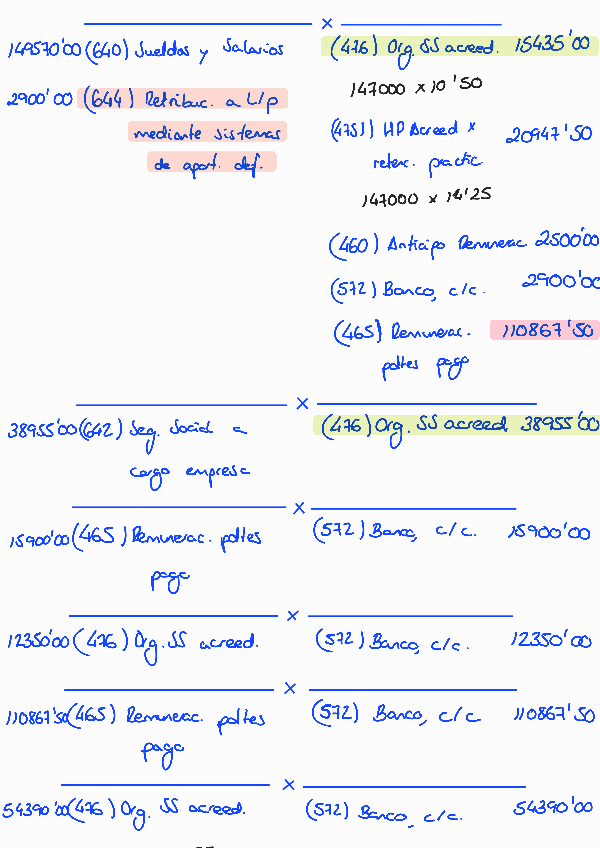 149570'00 (640) Sueldos y Salarios (476) Org. SS acreed. 15435'00
147000 x 10'50
2900'00 (644) Retribuc. a L/p (4751) HP Acreed x 20947'50
mediante sistemas retenc. practic
de aport. def.
147000 x 14'25
(460) Anticipo Remunerac. 2500'00
(572) Banco, c/c. 2900'00
(465) Remunerac. 110867'50
pdtes pago
38955'00 (642) Seg. Social a (476) Org. SS acreed. 38955'00
cargo empresa
15900'00 (465) Remunerac. pdtes (572) Banco, c/c. 15900'00
pago
12350'00 (476) Org. SS acreed. (572) Banco, c/c. 12350'00
110867'50 (465) Remunerac. pdtes (572) Banco, c/c 110867'50
pago
54390'00 (476) Org. SS acreed. (572) Banco, c/c. 54390'00